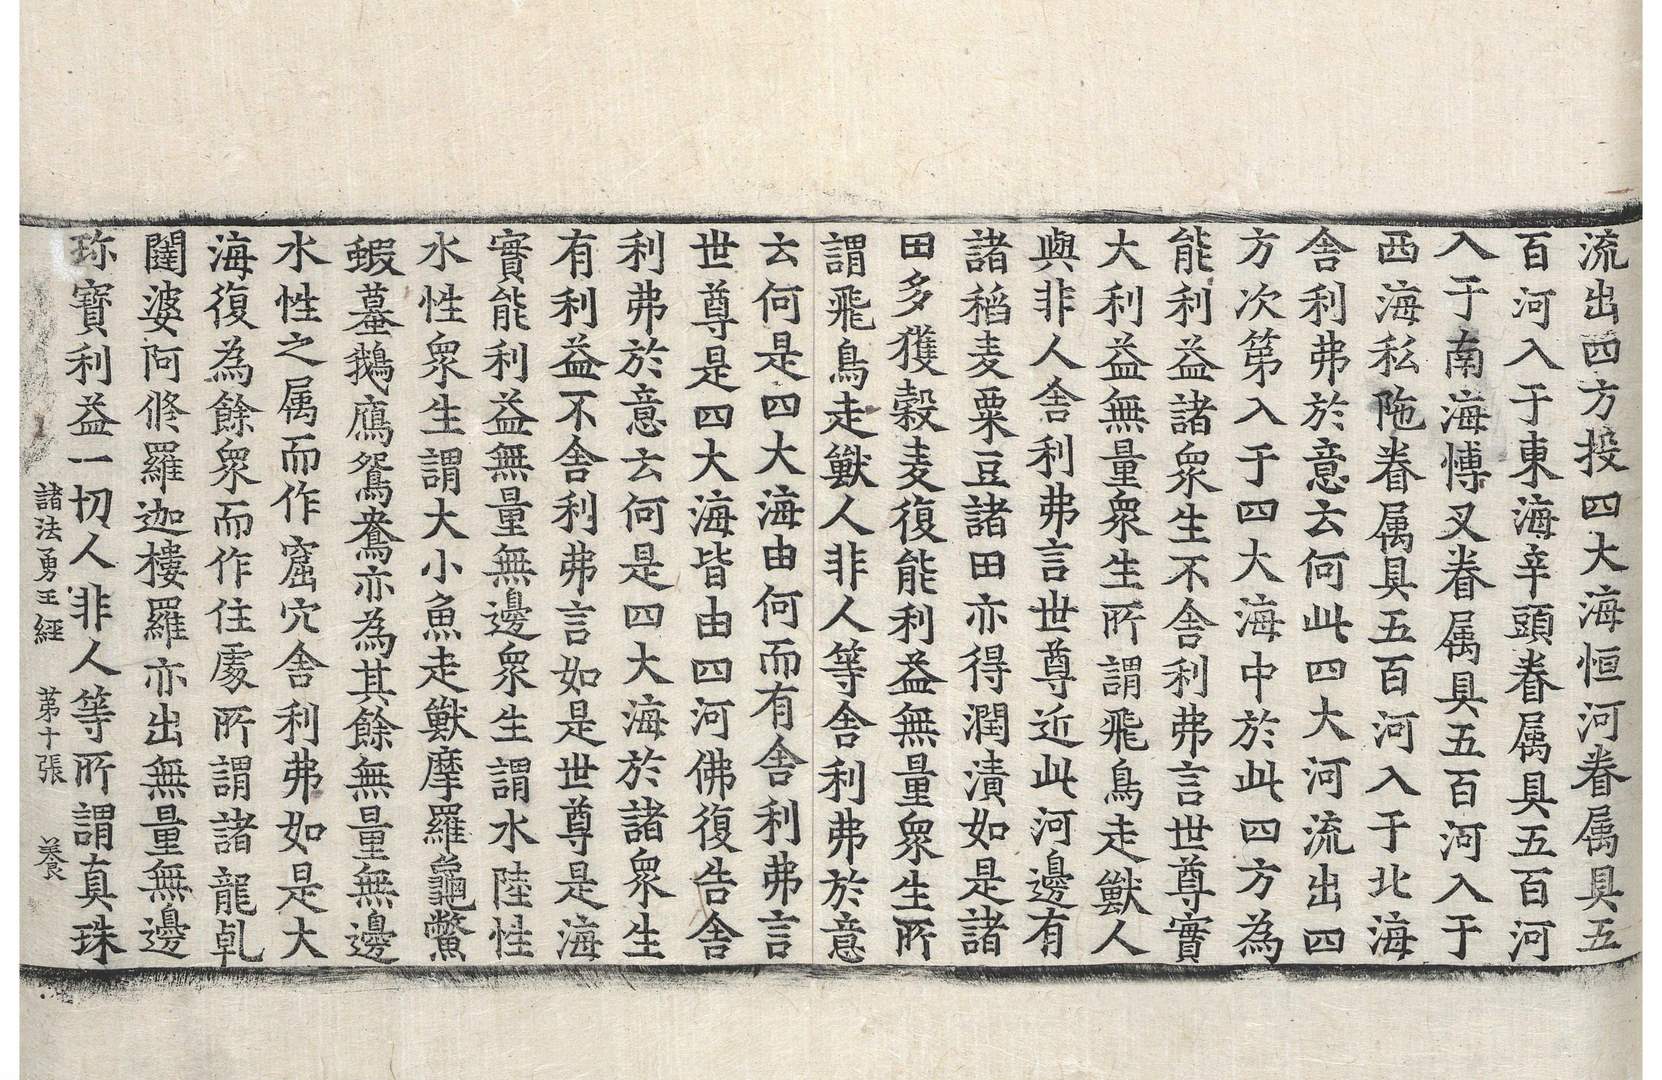 流出四方投四大海恒河眷属具五
百河入于東海辛頭眷属具五百河
入于南海愽叉眷属具五百河入于
西海私陁眷属具五百河入于北海
舎利弗於意云何此四大河流出四
方次第入于四大海中於此四方為
能利益諸衆生不舎利弗言世尊實
大利益無量衆生所謂飛鳥走獸人
與非人舎利弗言世尊近此河邊有
諸稻麦粟豆諸田亦得潤漬如是諸
田多獲穀麦復能利益無量衆生所
謂飛鳥走獸人非人等舎利弗於意
云何是四大海由何而有舎利弗言
世尊是四大海皆由四河佛復告舎
利弗於意云何是四大海於諸衆生
有利益不舎利弗言如是世尊是海
實能利益無量無邊衆生謂水陸性
水性衆生謂大小魚走獸摩羅龜鱉
蝦蟇鵝鴈鴛鴦亦為其餘無量無邊
水性之属而作窟穴舎利弗如是大
海復為餘衆而作住處所謂諸龍乹
闥婆阿修羅迦樓羅亦出無量無邊
珎寶利益一切人非人等所謂真珠
諸法勇王經 苐十張 養